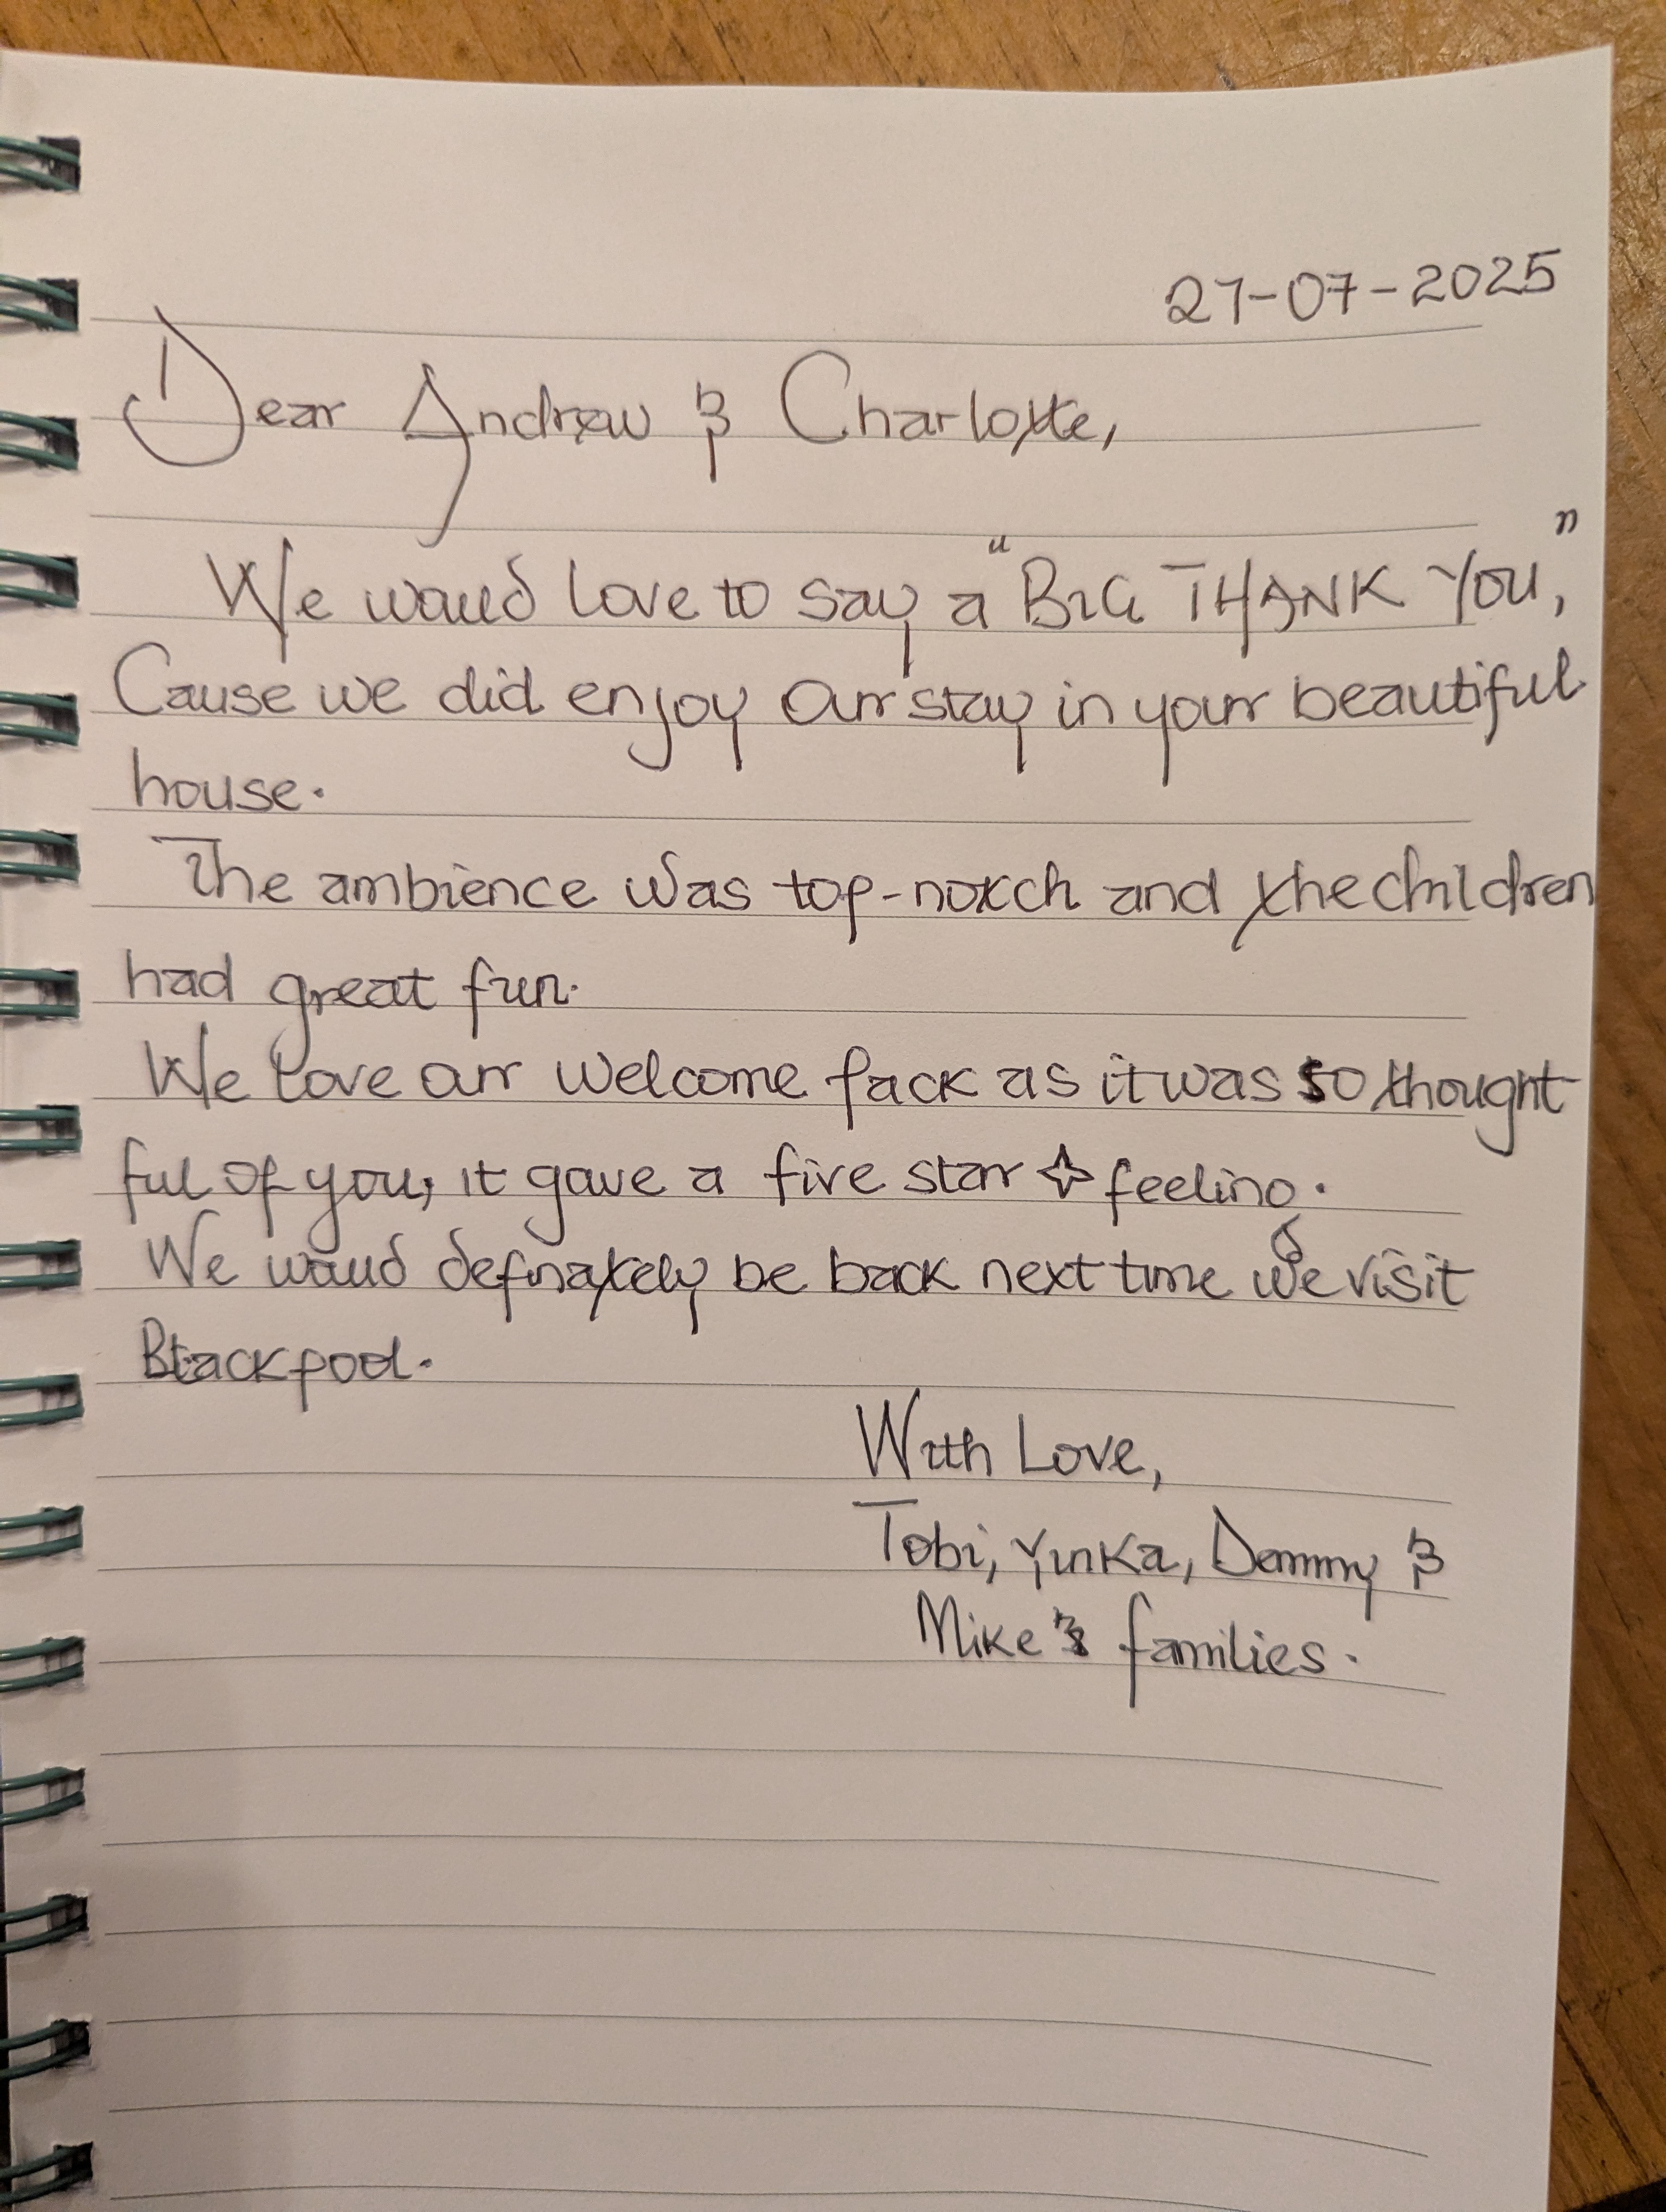 27-07-2025
Dear Andrew & Charlotte,
We would love to say a "BIG THANK YOU,"
Cause we did enjoy our stay in your beautiful
house.
The ambience was top-notch and the children
had great fun.
We love our welcome pack as it was so thought
ful of you, it gave a five star feeling.
We would definately be back next time we visit
Blackpool.
With Love,
Tobi, Yinka, Dammy &
Mike & families.